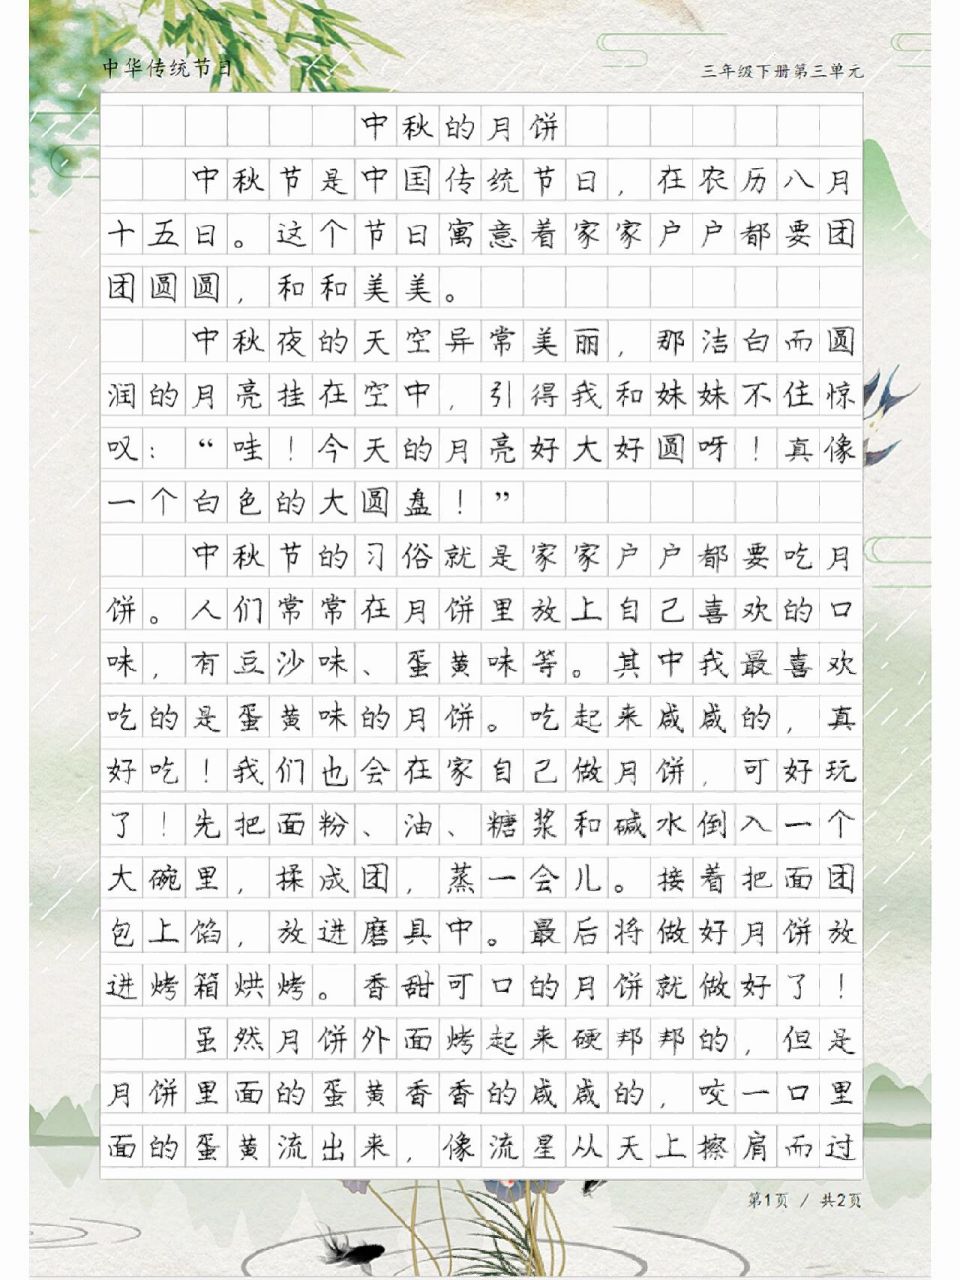 中华传统节日
三年级下册第三单元
中秋的月饼
中秋节是中国传统节日，在农历八月
十五日。这个节日寓意着家家户户都要团
团圆圆，和和美美。
中秋夜的天空异常美丽，那洁白而圆
润的月亮挂在空中，引得我和妹妹不住惊
叹：“哇！今天的月亮好大好圆呀！真像
一个白色的大圆盘！”
中秋节的习俗就是家家户户都要吃月
饼。人们常常在月饼里放上自己喜欢的口
味，有豆沙味、蛋黄味等。其中我最喜欢
吃的是蛋黄味的月饼。吃起来咸咸的，真
好吃！我们也会在家自己做月饼，可好玩
了！先把面粉、油、糖浆和碱水倒入一个
大碗里，揉成团，蒸一会儿。接着把面团
包上馅，放进磨具中。最后将做好月饼放
进烤箱烘烤。香甜可口的月饼就做好了！
虽然月饼外面烤起来硬邦邦的，但是
月饼里面的蛋黄香香的咸咸的，咬一口里
面的蛋黄流出来，像流星从天上擦肩而过
第1页 / 共2页